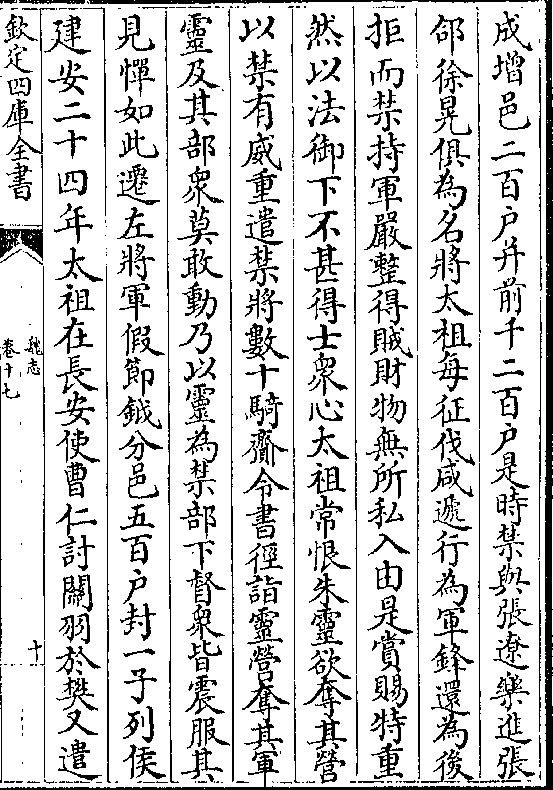 成增邑二百户并前千二百户是時禁與張遼樂進張
郃徐晃俱為名將太祖每征伐咸遞行為軍鋒還為後
拒而禁持軍嚴整得賊財物無所私入由是賞賜特重
然以法御下不甚得士衆心太祖常恨朱靈欲奪其營
以禁有威重遣禁將數十騎齎令書徑詣靈營奪其軍
靈及其部衆莫敢動乃以靈為禁部下督衆皆震服其
見憚如此遷左將軍假節鉞分邑五百户封一子列侯
建安二十四年太祖在長安使曹仁討關羽於樊又遣
欽定四庫全書
魏志
卷十七
十